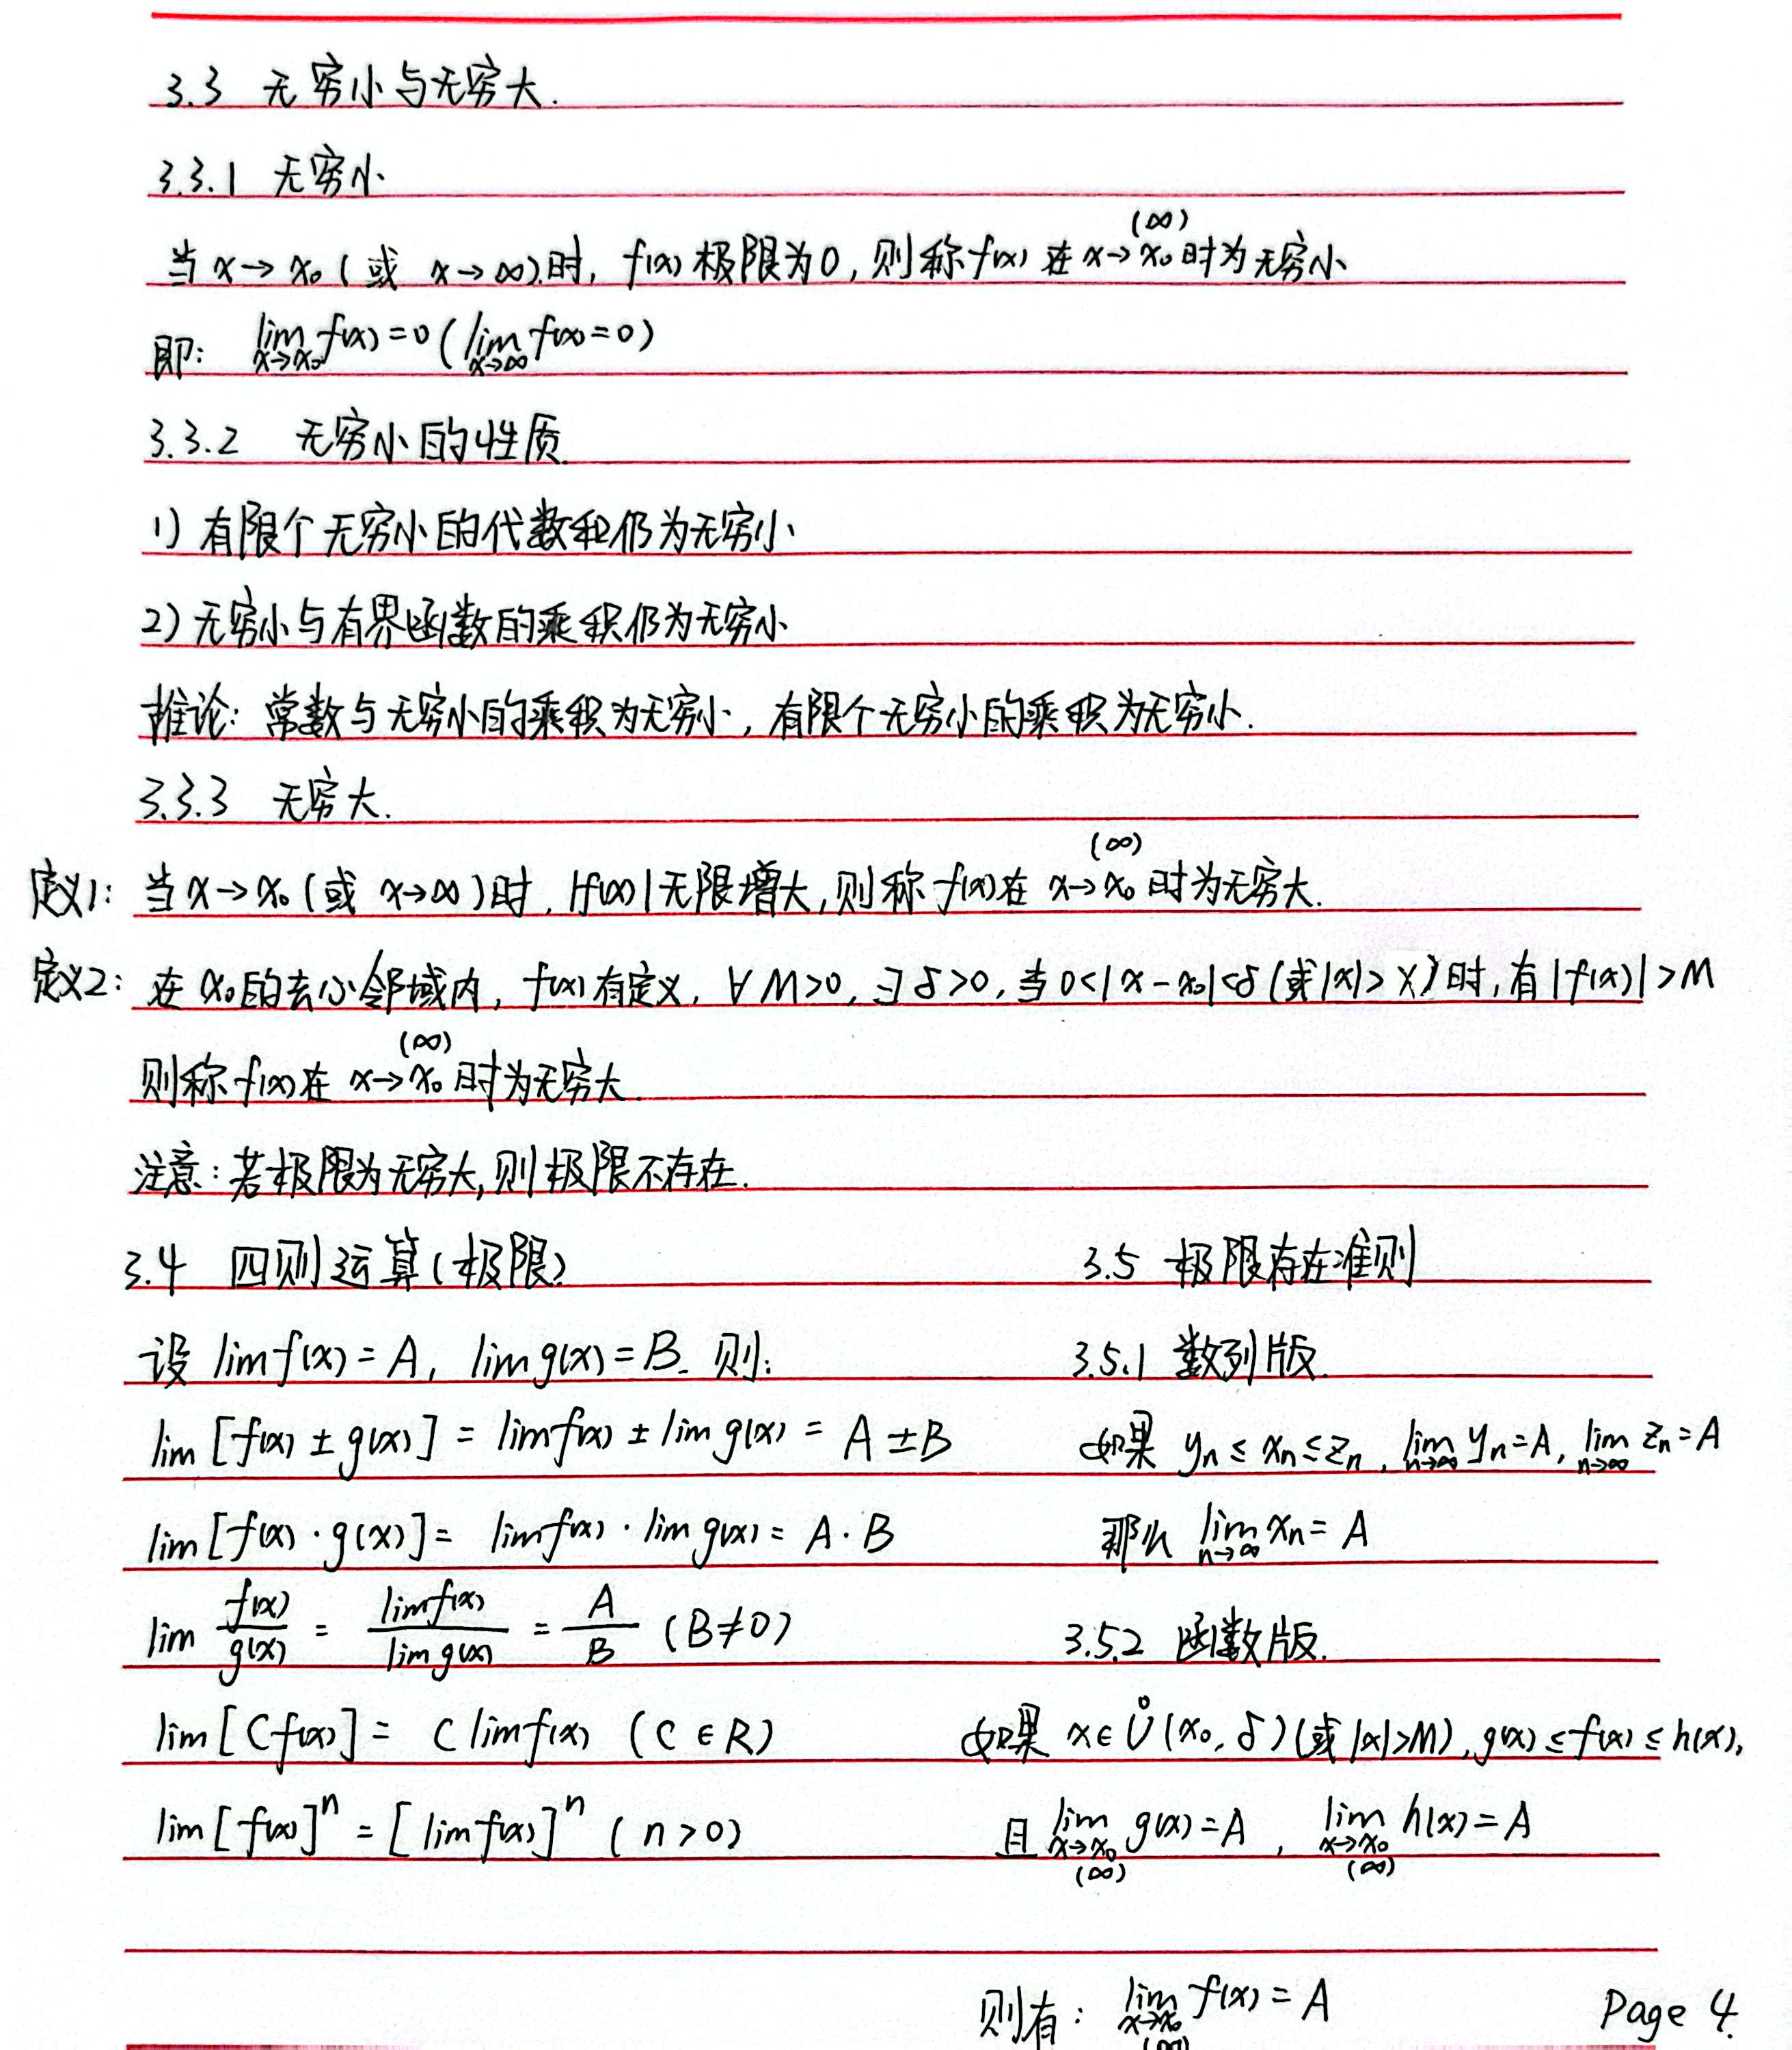 3.3 无穷小与无穷大.
3.3.1 无穷小
当 x→x₀ (或 x→∞)时, f(x) 极限为0, 则称 f(x) 在 x→x₀ (∞) 时为无穷小
即: lim_{x→x₀} f(x) = 0 ( lim_{x→∞} f(x) = 0 )
3.3.2 无穷小的性质.
1) 有限个无穷小的代数和仍为无穷小
2) 无穷小与有界函数的乘积仍为无穷小
推论: 常数与无穷小的乘积为无穷小, 有限个无穷小的乘积为无穷小.
3.3.3 无穷大.
定义1: 当 x→x₀ (或 x→∞)时, |f(x)|无限增大, 则称 f(x)在 x→x₀ (∞) 时为无穷大.
定义2: 在 x₀的去心邻域内, f(x)有定义, ∀ M>0, ∃ δ>0, 当 0<|x-x₀|<δ (或|x|>X)时, 有 |f(x)|>M
则称 f(x)在 x→x₀ (∞) 时为无穷大.
注意: 若极限为无穷大, 则极限不存在.
3.4 四则运算(极限)
设 lim f(x) = A, lim g(x) = B. 则:
lim [f(x) ± g(x)] = lim f(x) ± lim g(x) = A ± B
lim [f(x) · g(x)] = lim f(x) · lim g(x) = A · B
lim f(x)/g(x) = lim f(x)/lim g(x) = A/B (B≠0)
lim [C f(x)] = C lim f(x) (C ∈ R)
lim [f(x)]ⁿ = [lim f(x)]ⁿ (n>0)
3.5 极限存在准则
3.5.1 数列版.
如果 yₙ ≤ xₙ ≤ zₙ, lim_{n→∞} yₙ = A, lim_{n→∞} zₙ = A
那么 lim_{n→∞} xₙ = A
3.5.2 函数版.
如果 x∈Ů(x₀, δ)(或 |x|>M), g(x) ≤ f(x) ≤ h(x),
且 lim_{x→x₀ (∞)} g(x) = A, lim_{x→x₀ (∞)} h(x) = A
则有: lim_{x→x₀ (∞)} f(x) = A
Page 4.